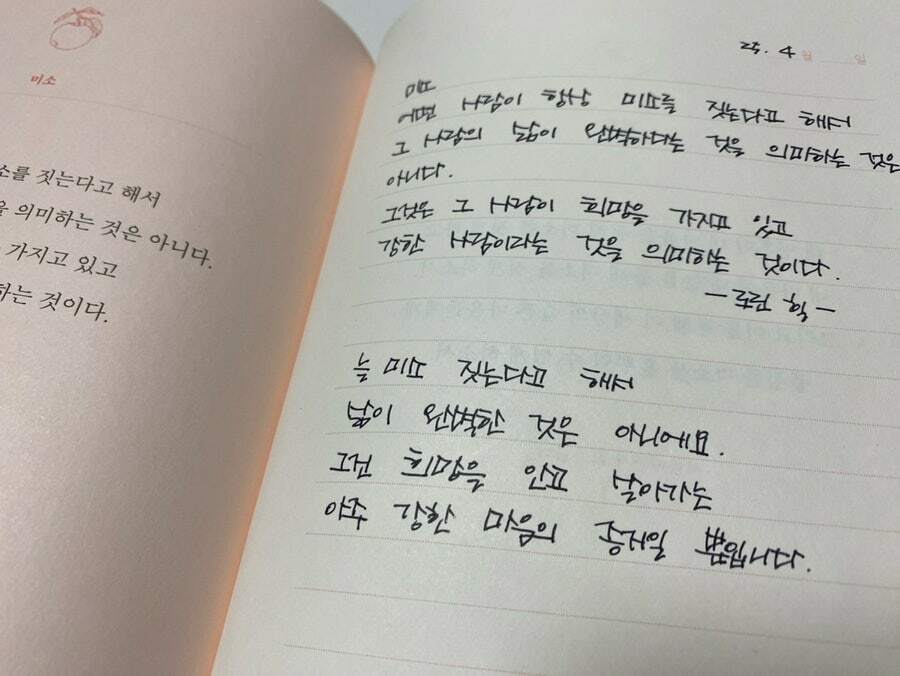 미소
소를 짓는다고 해서
을 의미하는 것은 아니다.
가지고 있고
하는 것이다.
25. 4월 일
미소
어떤 사람이 항상 미소를 짓는다고 해서
그 사람의 삶이 완벽하다는 것을 의미하는 것은
아니다.
그것은 그 사람이 희망을 가지고 있고
강한 사람이라는 것을 의미하는 것이다.
늘 미소 짓는다고 해서
삶이 완벽한 것은 아니에요.
그건 희망을 안고 살아가는
아주 강한 마음의